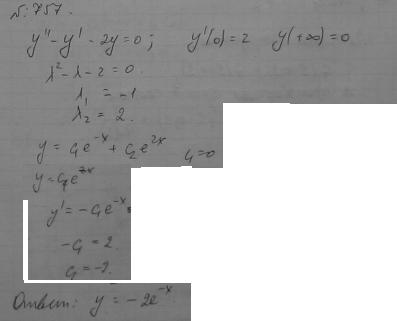 №: 757.
y'' - y' - 2y = 0; y'(0) = 2 y(+∞) = 0
λ² - λ - 2 = 0.
λ₁ = -1
λ₂ = 2.
y = C₁e⁻ˣ + C₂e²ˣ C₁ = 0
y = C₁e⁻ˣ
y' = -C₁e⁻ˣ
-C₁ = 2.
C₁ = -2.
Ответ: y = -2e⁻ˣ